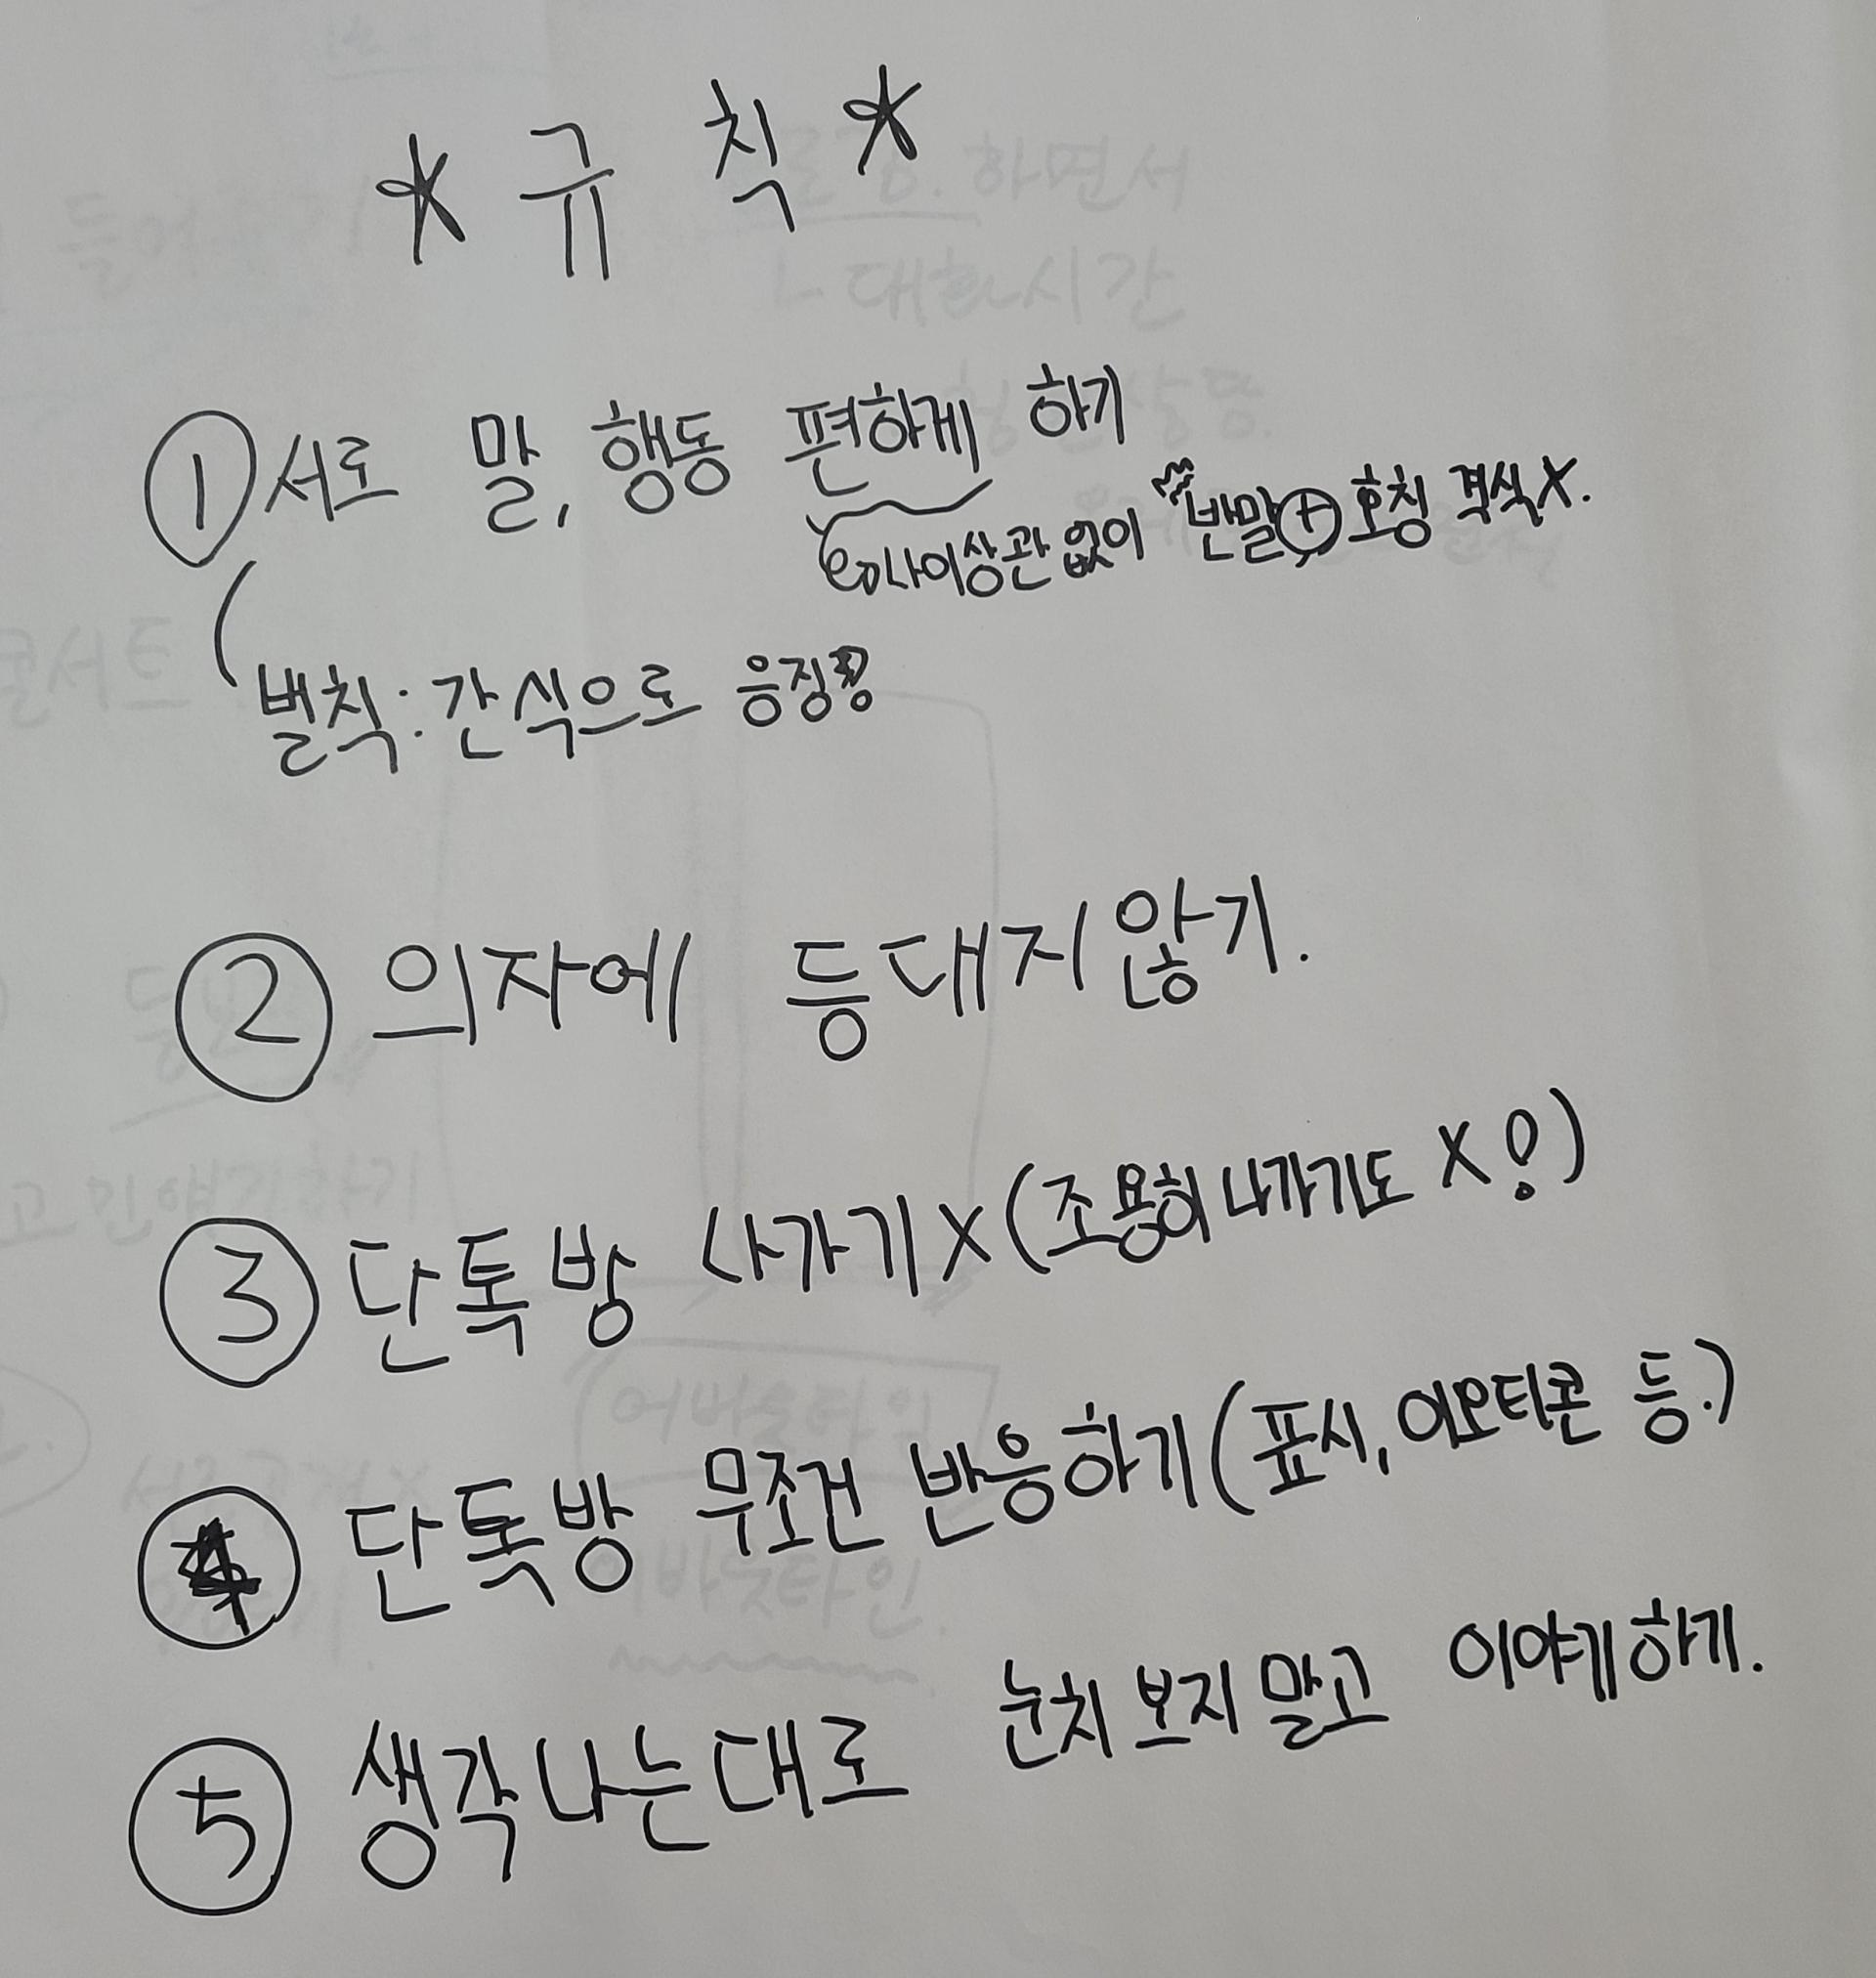 * 규칙 *
① 서로 말, 행동 편하게 하기
나이상관 없이 반말 ⊕ 호칭 격식X.
벌칙: 간식으로 응징
② 의자에 등대지 않기.
③ 단톡방 나가기X (조용히 나가기도 X!)
④ 단톡방 무조건 반응하기 (표시, 이모티콘 등.)
⑤ 생각나는대로 눈치 보지 말고 이야기하기.